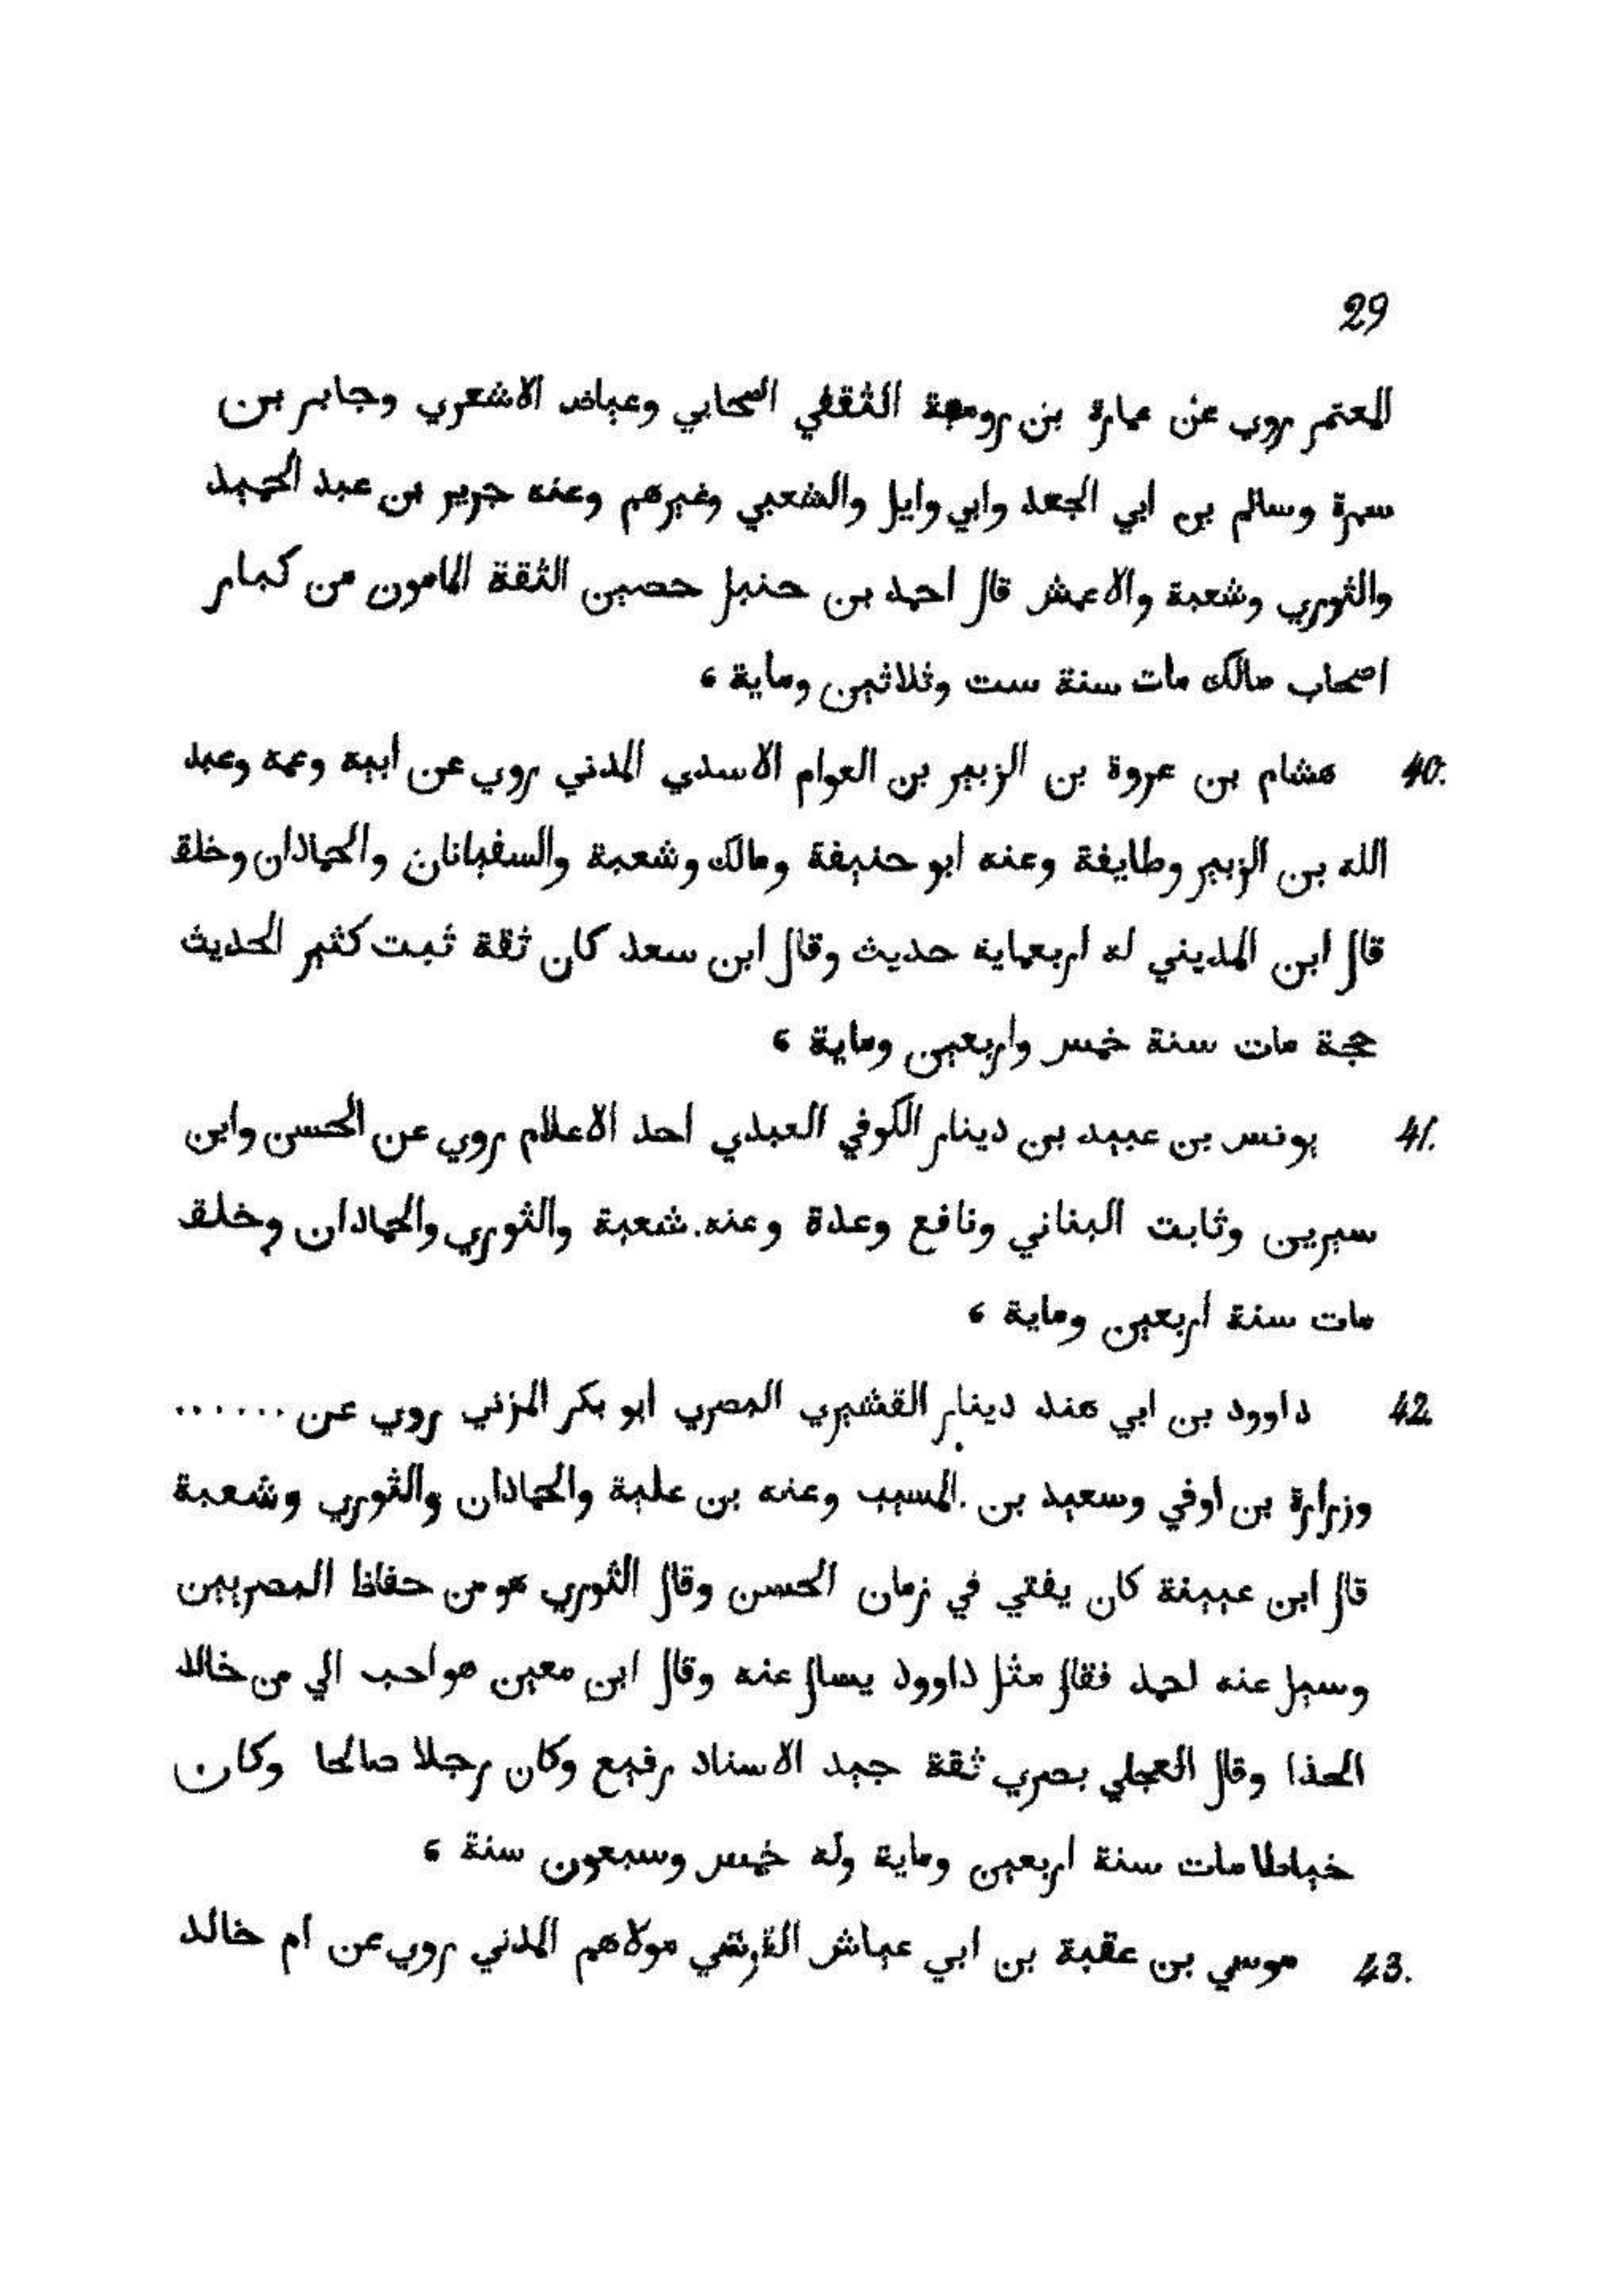 29
المعتمر روي عن عمارة بن رومية الثقفي الصحابي وعياض الاشعري وجابر بن
سمرة وسالم بن ابي الجعد وابي وايل والشعبي وغيرهم وعنه جرير بن عبد الحميد
والثوري وشعبة والاعمش قال احمد بن حنبل حصين الثقة المامون من كبار
اصحاب مالك مات سنة ست وثلاثين وماية ،
40. هشام بن عروة بن الزبير بن العوام الاسدي المدني روي عن ابيه وعمه وعبد
الله بن الزبير وطايفة وعنه ابو حنيفة ومالك وشعبة والسفيانان والحمادان وخلق
قال ابن المديني له اربعماية حديث وقال ابن سعد كان ثقة ثبت كثير الحديث
حجة مات سنة خمس واربعين وماية ،
41. يونس بن عبيد بن دينار الكوفي العبدي احد الاعلام روي عن الحسن وابن
سيرين وثابت البناني ونافع وعدة وعنه شعبة والثوري والحمادان وخلق
مات سنة اربعين وماية ،
42. داوود بن ابي هند دينار القشيري المصري ابو بكر المزني روي عن ......
وزرارة بن اوفي وسعيد بن المسيب وعنه بن علية والحمادان والثوري وشعبة
قال ابن عيينة كان يفتي في زمان الحسن وقال الثوري هو من حفاظ المصريين
وسيل عنه احمد فقال مثل داوود يسال عنه وقال ابن معين هو احب الي من خالد
الحذا وقال العجلي بصري ثقة جيد الاسناد رفيع وكان رجلا صالحا وكان
خياطا مات سنة اربعين وماية وله خمس وسبعون سنة ،
43. موسي بن عقبة بن ابي عياش القرشي مولاهم المدني روي عن ام خالد